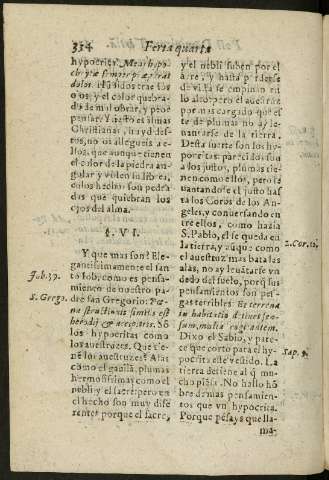 334 Feria quarta
hypocrita. Mens hypo-
chritæ semper parat
dolos. Huid dos tras los
ojos, y el color quebra-
do de mal obrar, y peor
pensar. Y desto el almas
Christianas, hayd des-
tos, no os allegueis a e-
llos, que aunque tienen
el color de la piedra an-
gular y vozen su libres,
en los hechos son pedra
das que quiebran los
ojos del alma.
§. VI.
Y que mas son? Ele-
gantissimamente el san-
to Iob, como es pensa-
miento de nuestro pa-
dre san Gregorio: Pœ-
na struthionis similis est
herodij & accipitris. Sõ
los hypocritas como
los auestruzes. Que tie-
nẽ los auestruzes? Alas
como el gauilã, plumas
hermosissimas como el
nebli y el sacre: pero en
el hecho son muy dife
rentes porque el sacre,
y el nebli suben por el
ayre, y hasta perderse
de vista se empinan en
lo alto: pero el auestruz
por mas cargado que es
te de plumas no ay le-
uantarse de la tierra.
Desta suerte son los hy-
pocritas: parecidos son
a los justos, plumas tie-
nen como ellos, pero le
uantandose el justo has
ta los Coros de los An-
geles, y conuersando en
tre ellos, como hazia
S. Pablo, el se queda en
la tierra, y aũque como
el auestruz mas bata las
alas, no ay leuãtarse vn
dedo del suelo, porq̃ sus
pensamientos son pes-
gas terribles. Et terrena
inhabitatio deprimit sen-
sum, multa cogitantem.
Dixo el Sabio, y pare-
ce que corto para el hy-
pocrita este vestido. La
tierra detiene al q̃ mu-
cho piẽsa. No hallo hõ
bre de mas pensamien-
tos que vn hypocrita.
Porque pẽsays que lla-
ma-
Iob. 39.
S. Grego.
2. Cor. 12.
Sap. 9.